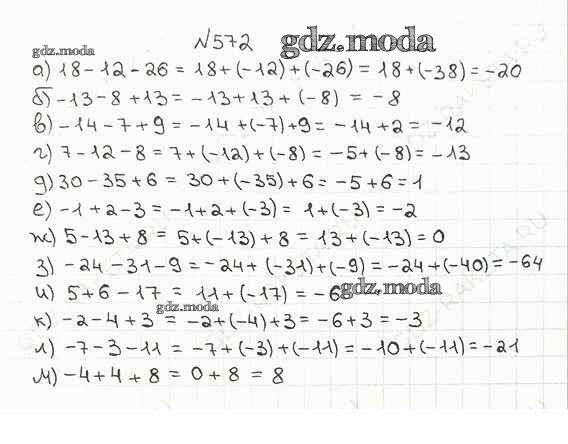 №572 gdz.moda
gdz.moda
а) 18-12-26 = 18+(-12)+(-26) = 18+(-38) = -20
б) -13-8+13 = -13+13+(-8) = -8
в) -14-7+9 = -14+(-7)+9 = -14+2 = -12
г) 7-12-8 = 7+(-12)+(-8) = -5+(-8) = -13
д) 30-35+6 = 30+(-35)+6 = -5+6 = 1
е) -1+2-3 = -1+2+(-3) = 1+(-3) = -2
ж) 5-13+8 = 5+(-13)+8 = 13+(-13) = 0
з) -24-31-9 = -24+(-31)+(-9) = -24+(-40) = -64
и) 5+6-17 = 11+(-17) = -6 gdz.moda
gdz.moda
к) -2-4+3 = -2+(-4)+3 = -6+3 = -3
л) -7-3-11 = -7+(-3)+(-11) = -10+(-11) = -21
м) -4+4+8 = 0+8 = 8